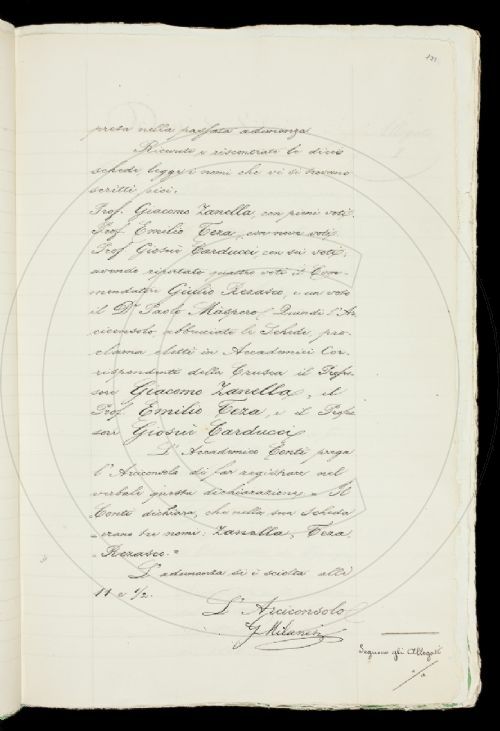 131
presa nella passata adunanza.
Ricevute e riscontrate le dieci
schede, leggo i nomi che vi si trovano
scritti
Prof. Giacomo Zanella, con pieni voti.
Prof. Emilio Teza, con nove voti.
Prof. Giosuè Carducci con sei voti,
avendo riportato quattro voti il Com-
mendatore Giulio Rezasco, e un voto
il Dr. Paolo Maspero. Quindi l'Ar
ciconsolo, abbruciate le Schede, pro-
clama eletti in Accademici Cor-
rispondente della Crusca il Profes-
sore Giacomo Zanella, il
Prof. Emilio Teza, e il Profes
sore Giosuè Carducci
L'Accademico Conti prega
l'Arciconsolo di far registrare nel
verbale questa dichiarazione = Il
Conti dichiara, che nella sua Scheda
erano tre nomi: Zanella, Teza,
Rezasco."
L'adunanza si è sciolta alle
11 e 1/2.
L'Arciconsolo
G Milanesi
Seguono gli Allegati